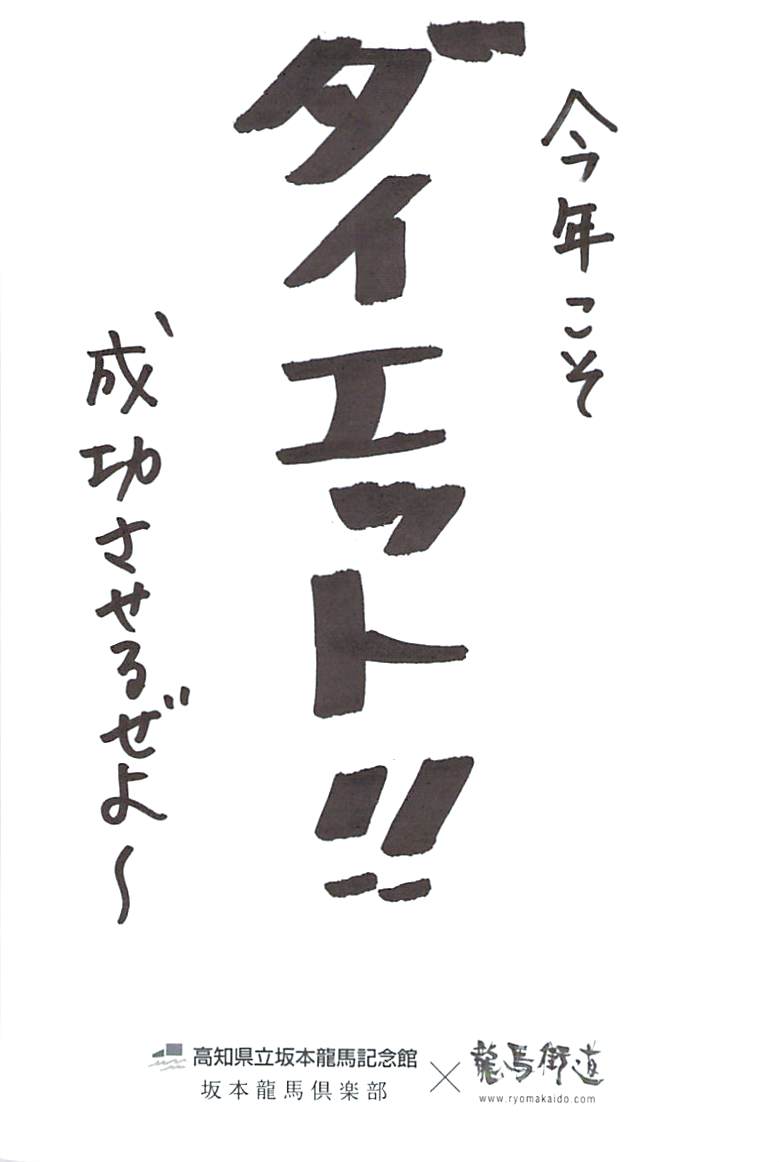 今年こそ
ダイエット!!
成功させるぜよ〜
高知県立坂本龍馬記念館
坂本龍馬倶楽部
×
龍馬街道
www.ryomakaido.com